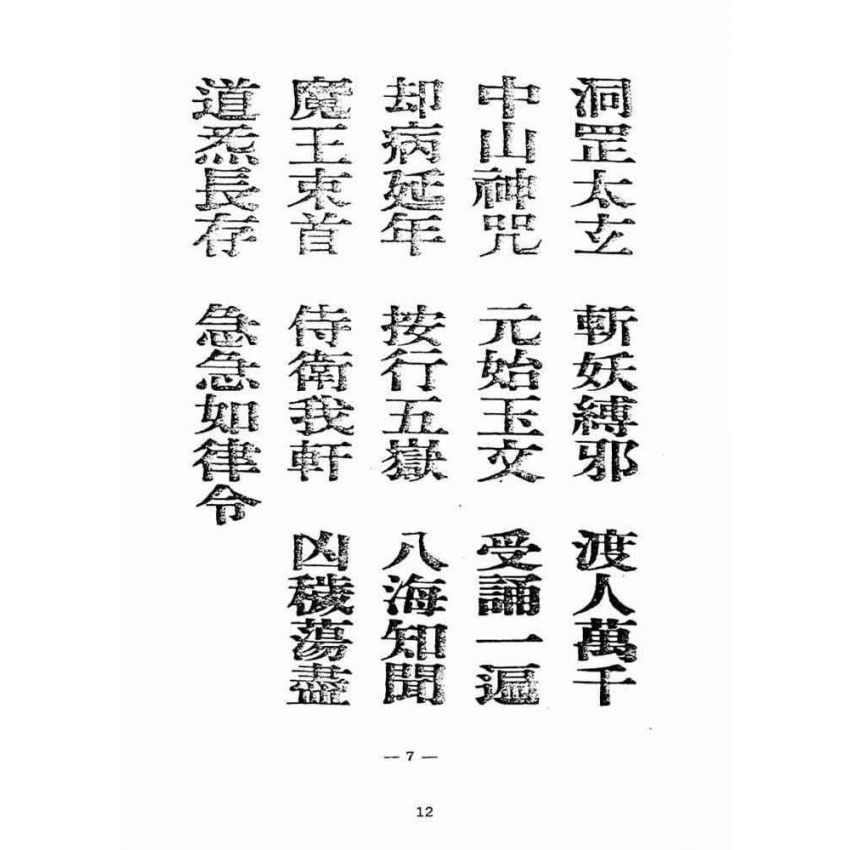 洞罡太玄　斬妖縛邪　渡人萬千
中山神咒　元始玉文　受誦一遍
却病延年　按行五嶽　八海知聞
魔王束首　侍衛我軒　凶穢蕩盡
道炁長存　急急如律令
— 7 —
12